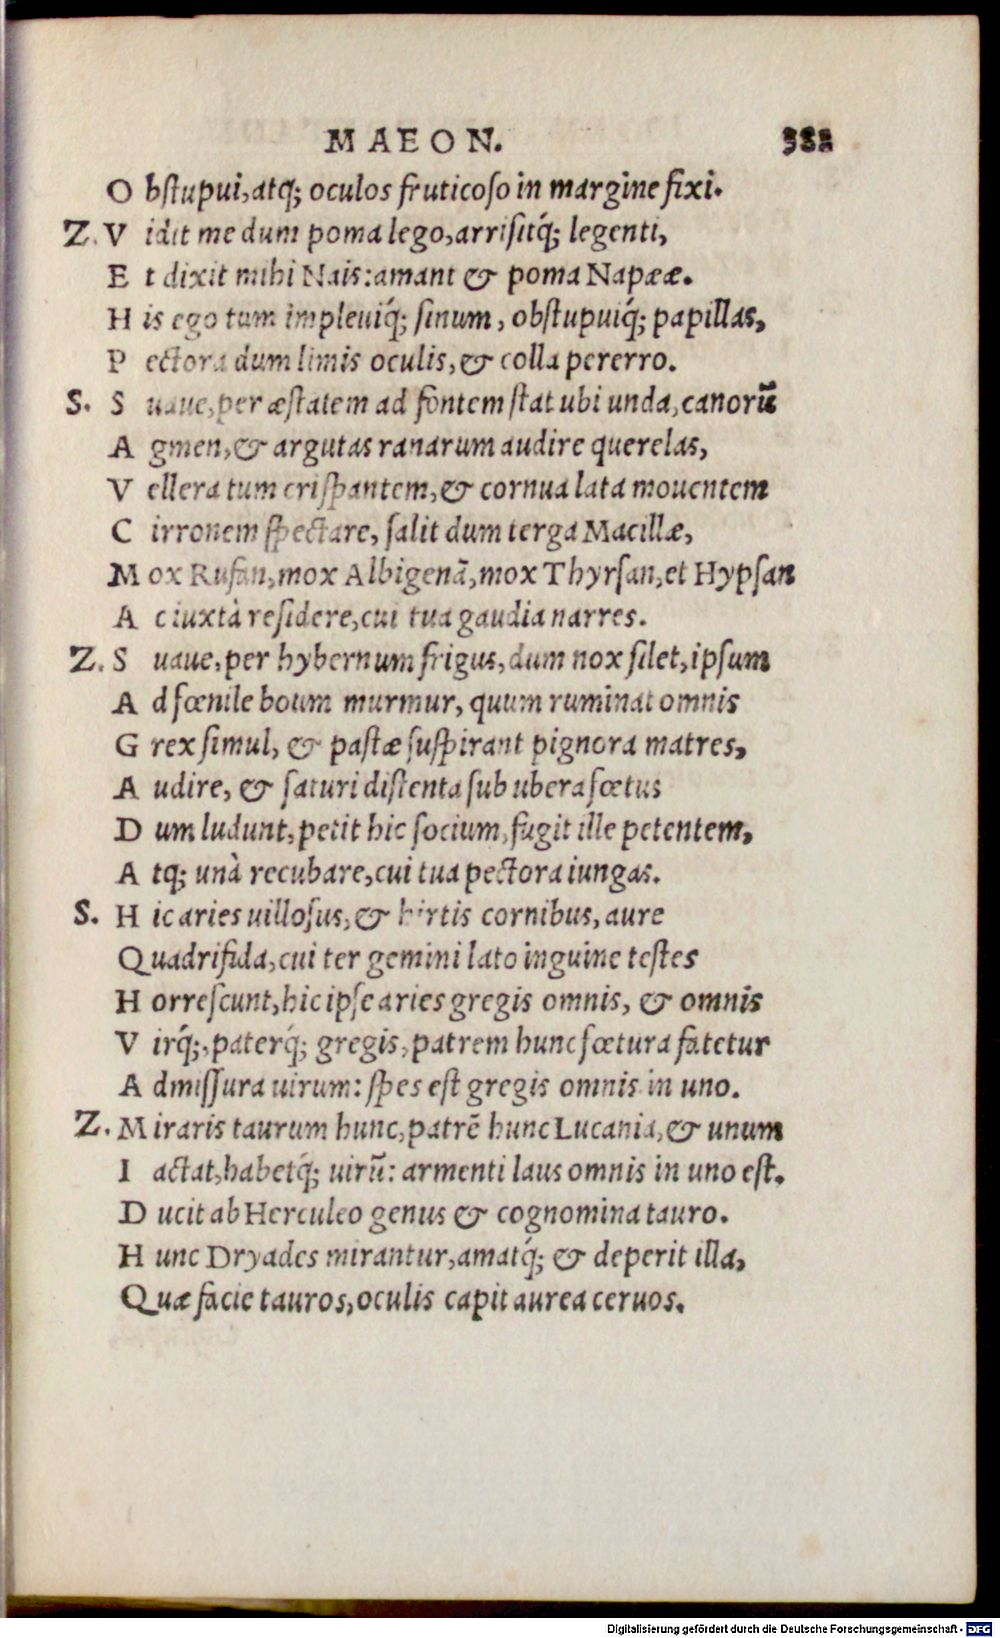 MAEON. 
O bstupui, atq; oculos fruticoso in margine fixi.
Z. V idit me dum poma lego, arrisitq́; legenti,
E t dixit mihi Nais: amant & poma Napææ.
H is ego tum impleuiq́; sinum, obstupuiq́; papillas,
P ectora dum limis oculis, & colla pererro.
S. S uaue, per æstatem ad fontem stat ubi unda, canorũ
A gmen, & argutas ranarum audire querelas,
V ellera tum crispantem, & cornua lata mouentem
C irronem spectare, salit dum terga Macillæ,
M ox Rufan, mox Albigenã, mox Thyrsan, et Hypsan
A c iuxtà residere, cui tua gaudia narres.
Z. S uaue, per hybernum frigus, dum nox silet, ipsum
A d fœnile boum murmur, quum ruminat omnis
G rex simul, & pastæ suspirant pignora matres,
A udire, & saturi distenta sub ubera fœtus
D um ludunt, petit hic socium, fugit ille petentem,
A tq; unà recubare, cui tua pectora iungas.
S. H ic aries uillosus, & hirtis cornibus, aure
Quadrifida, cui ter gemini lato inguine testes
H orrescunt, hic ipse aries gregis omnis, & omnis
V irq́;, paterq́; gregis, patrem hunc fœtura fatetur
A dmissura uirum: spes est gregis omnis in uno.
Z. M iraris taurum hunc, patrẽ hunc Lucania, & unum
I actat, habetq́; uirũ: armenti laus omnis in uno est.
D ucit ab Herculeo genus & cognomina tauro.
H unc Dryades mirantur, amatq́; & deperit illa,
Quæ facie tauros, oculis capit aurea ceruos.
Digitalisierung gefördert durch die Deutsche Forschungsgemeinschaft - DFG